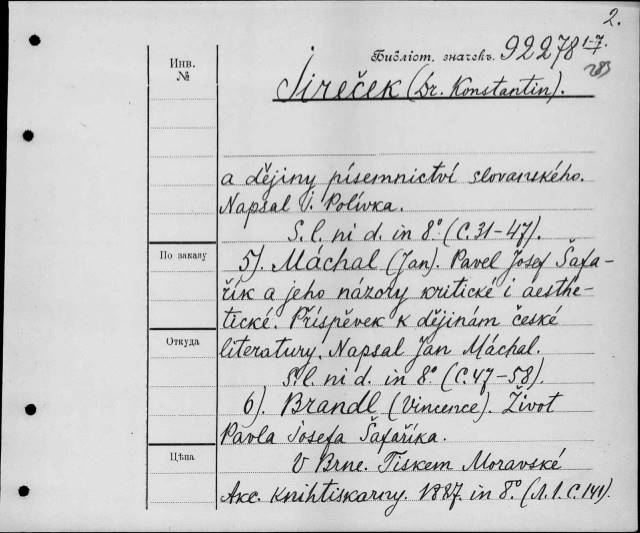 2.
Инв.
№
Библіот. значекъ. 92278 1-7.
283
Jireček (Dr. Konstantin).
a dějiny písemnictví slovanského.
Napsal J. Polívka.
S. l. ni d. in 8° (C. 31-47).
По заказу
5). Máchal (Jan). Pavel Josef Šafa-
řík a jeho názory kritické i aesthe-
tické. Příspěvek k dějinám české
Откуда
literatury. Napsal Jan Máchal.
S. l. ni d. in 8° (C. 47-58).
6). Brandl (Vincence). Život
Pavla Josefa Šafaříka.
Цѣна
V Brne. Tiskem Moravské
Akc. Knihtiskarny. 1887. in 8° (Л. 1. C. 141).